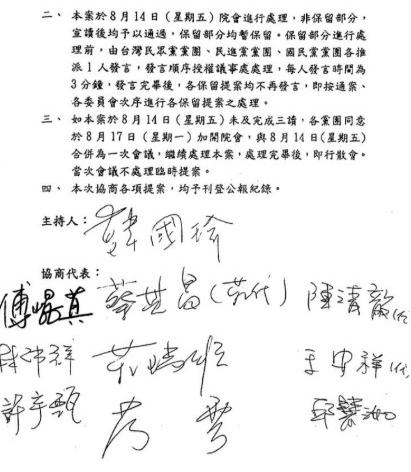 二、本案於8月14日（星期五）院會進行處理，非保留部分，
宣讀後均予以通過，保留部分均暫保留。保留部分進行處
理前，由台灣民眾黨黨團、民進黨黨團、國民黨黨團各推
派1人發言，發言順序授權議事處處理，每人發言時間為
3分鐘，發言完畢後，各保留提案均不再發言，即按通案、
各委員會次序進行各保留提案之處理。
三、如本案於8月14日（星期五）未及完成三讀，各黨團同意
於8月17日（星期一）加開院會，與8月14日（星期五）
合併為一次會議，繼續處理本案，處理完畢後，即行散會。
當次會議不處理臨時提案。
四、本次協商各項提案，均予刊登公報紀錄。
主持人：韓國瑜
協商代表：
傅崐萁 蔡其昌
陳清龍
許宇甄